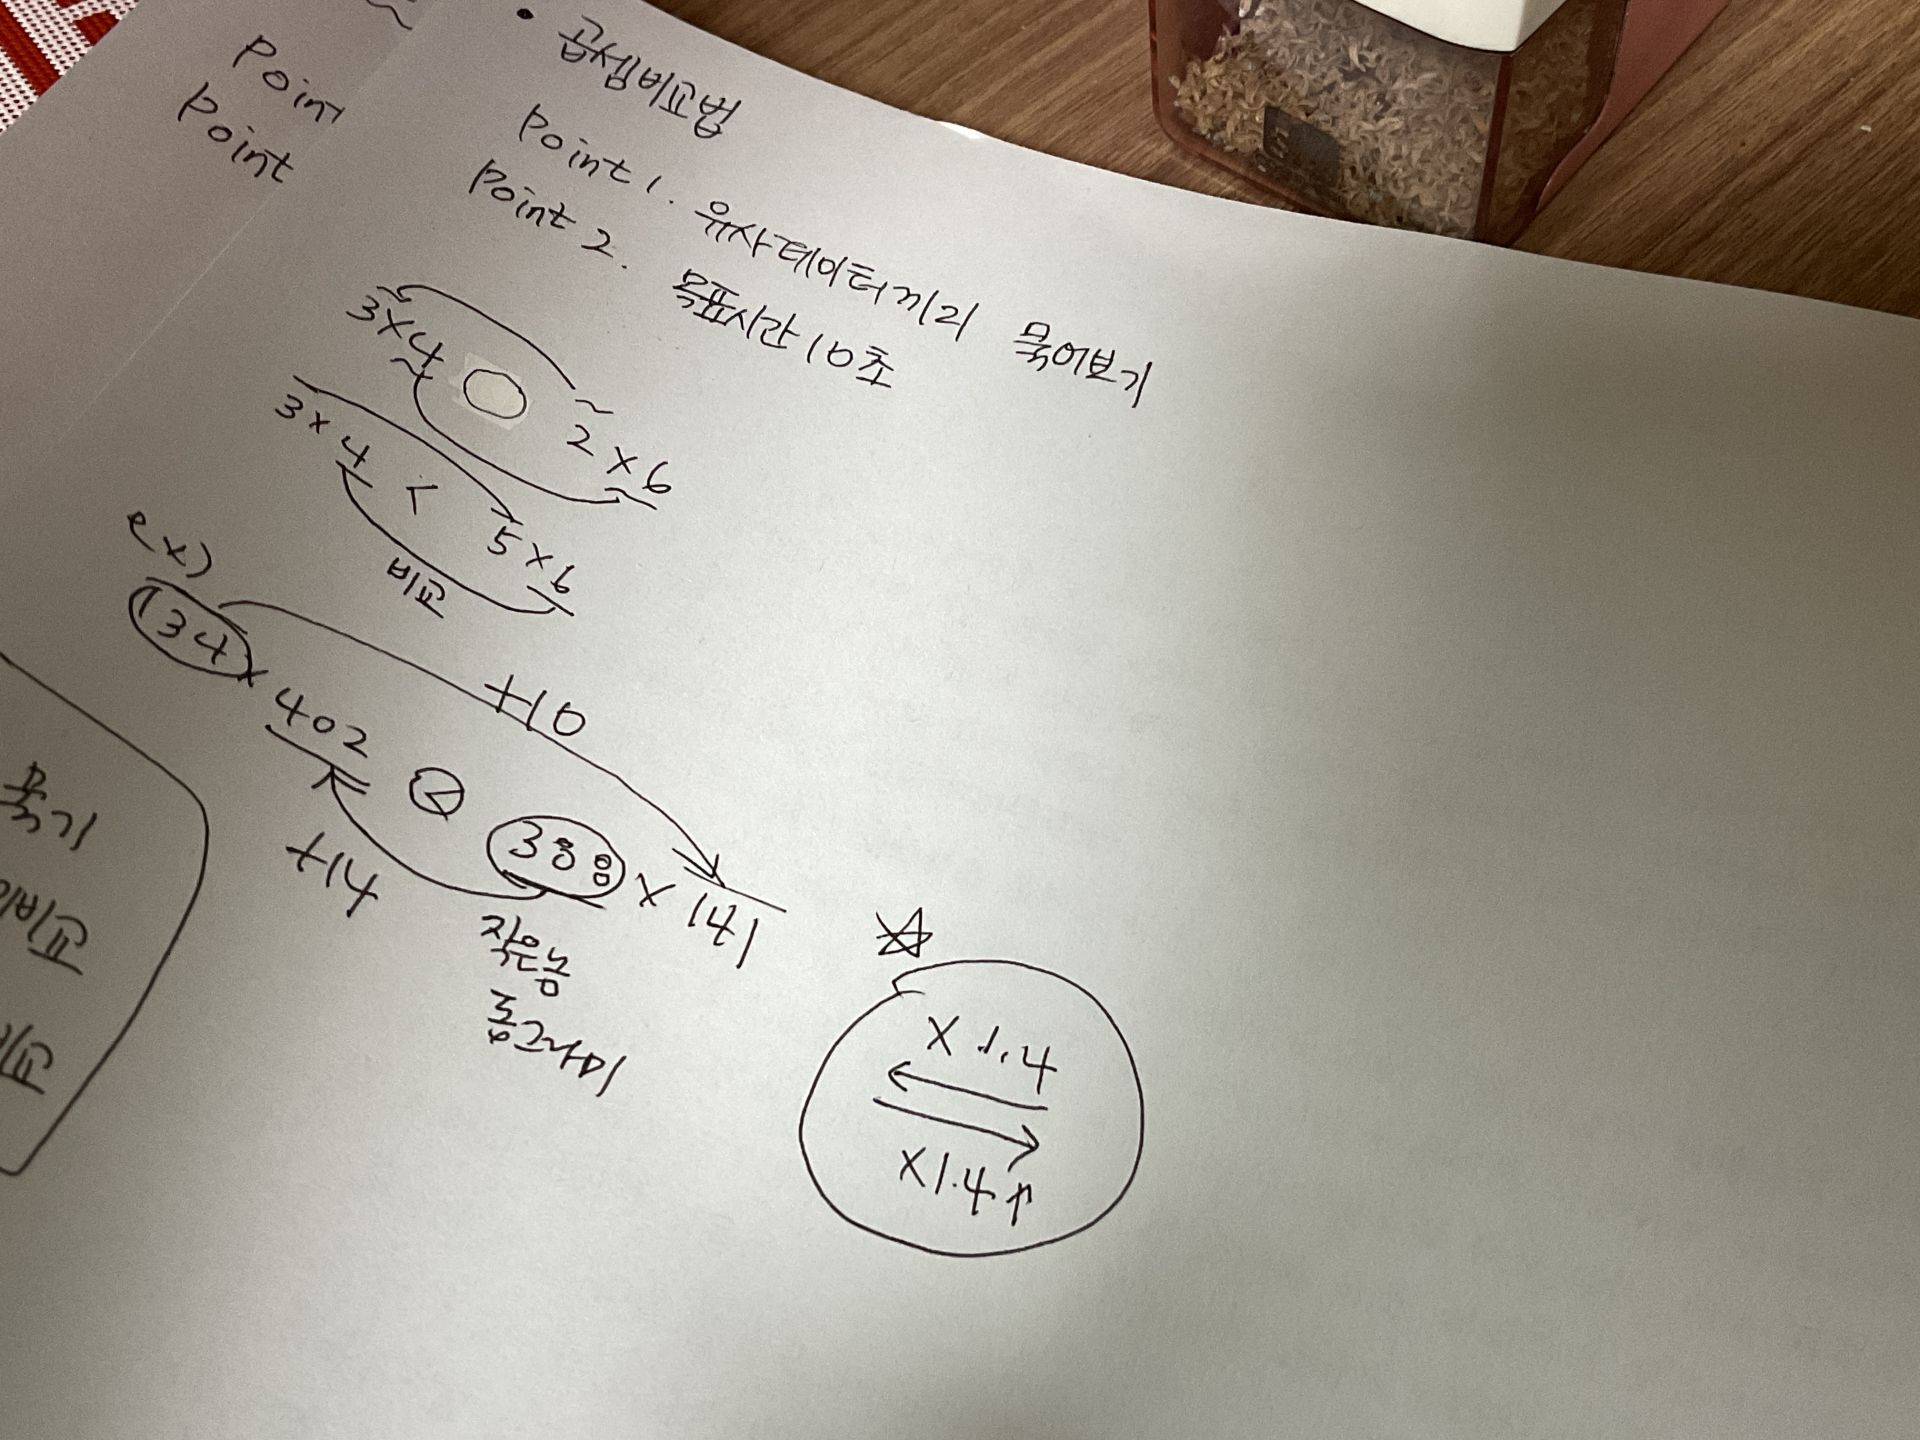 point
point
• 곱셈비교법
point 1. 유사데이터끼리 묶어보기
point 2. 목표시간 10초
3×4 ○ 2×6
3×4 < 5×6
비교
ex)
134 × 402 < 388 × 141
+10
+14
작은놈
동그라미
☆
× 1.4
← →
×1.4↑
묶기
비교